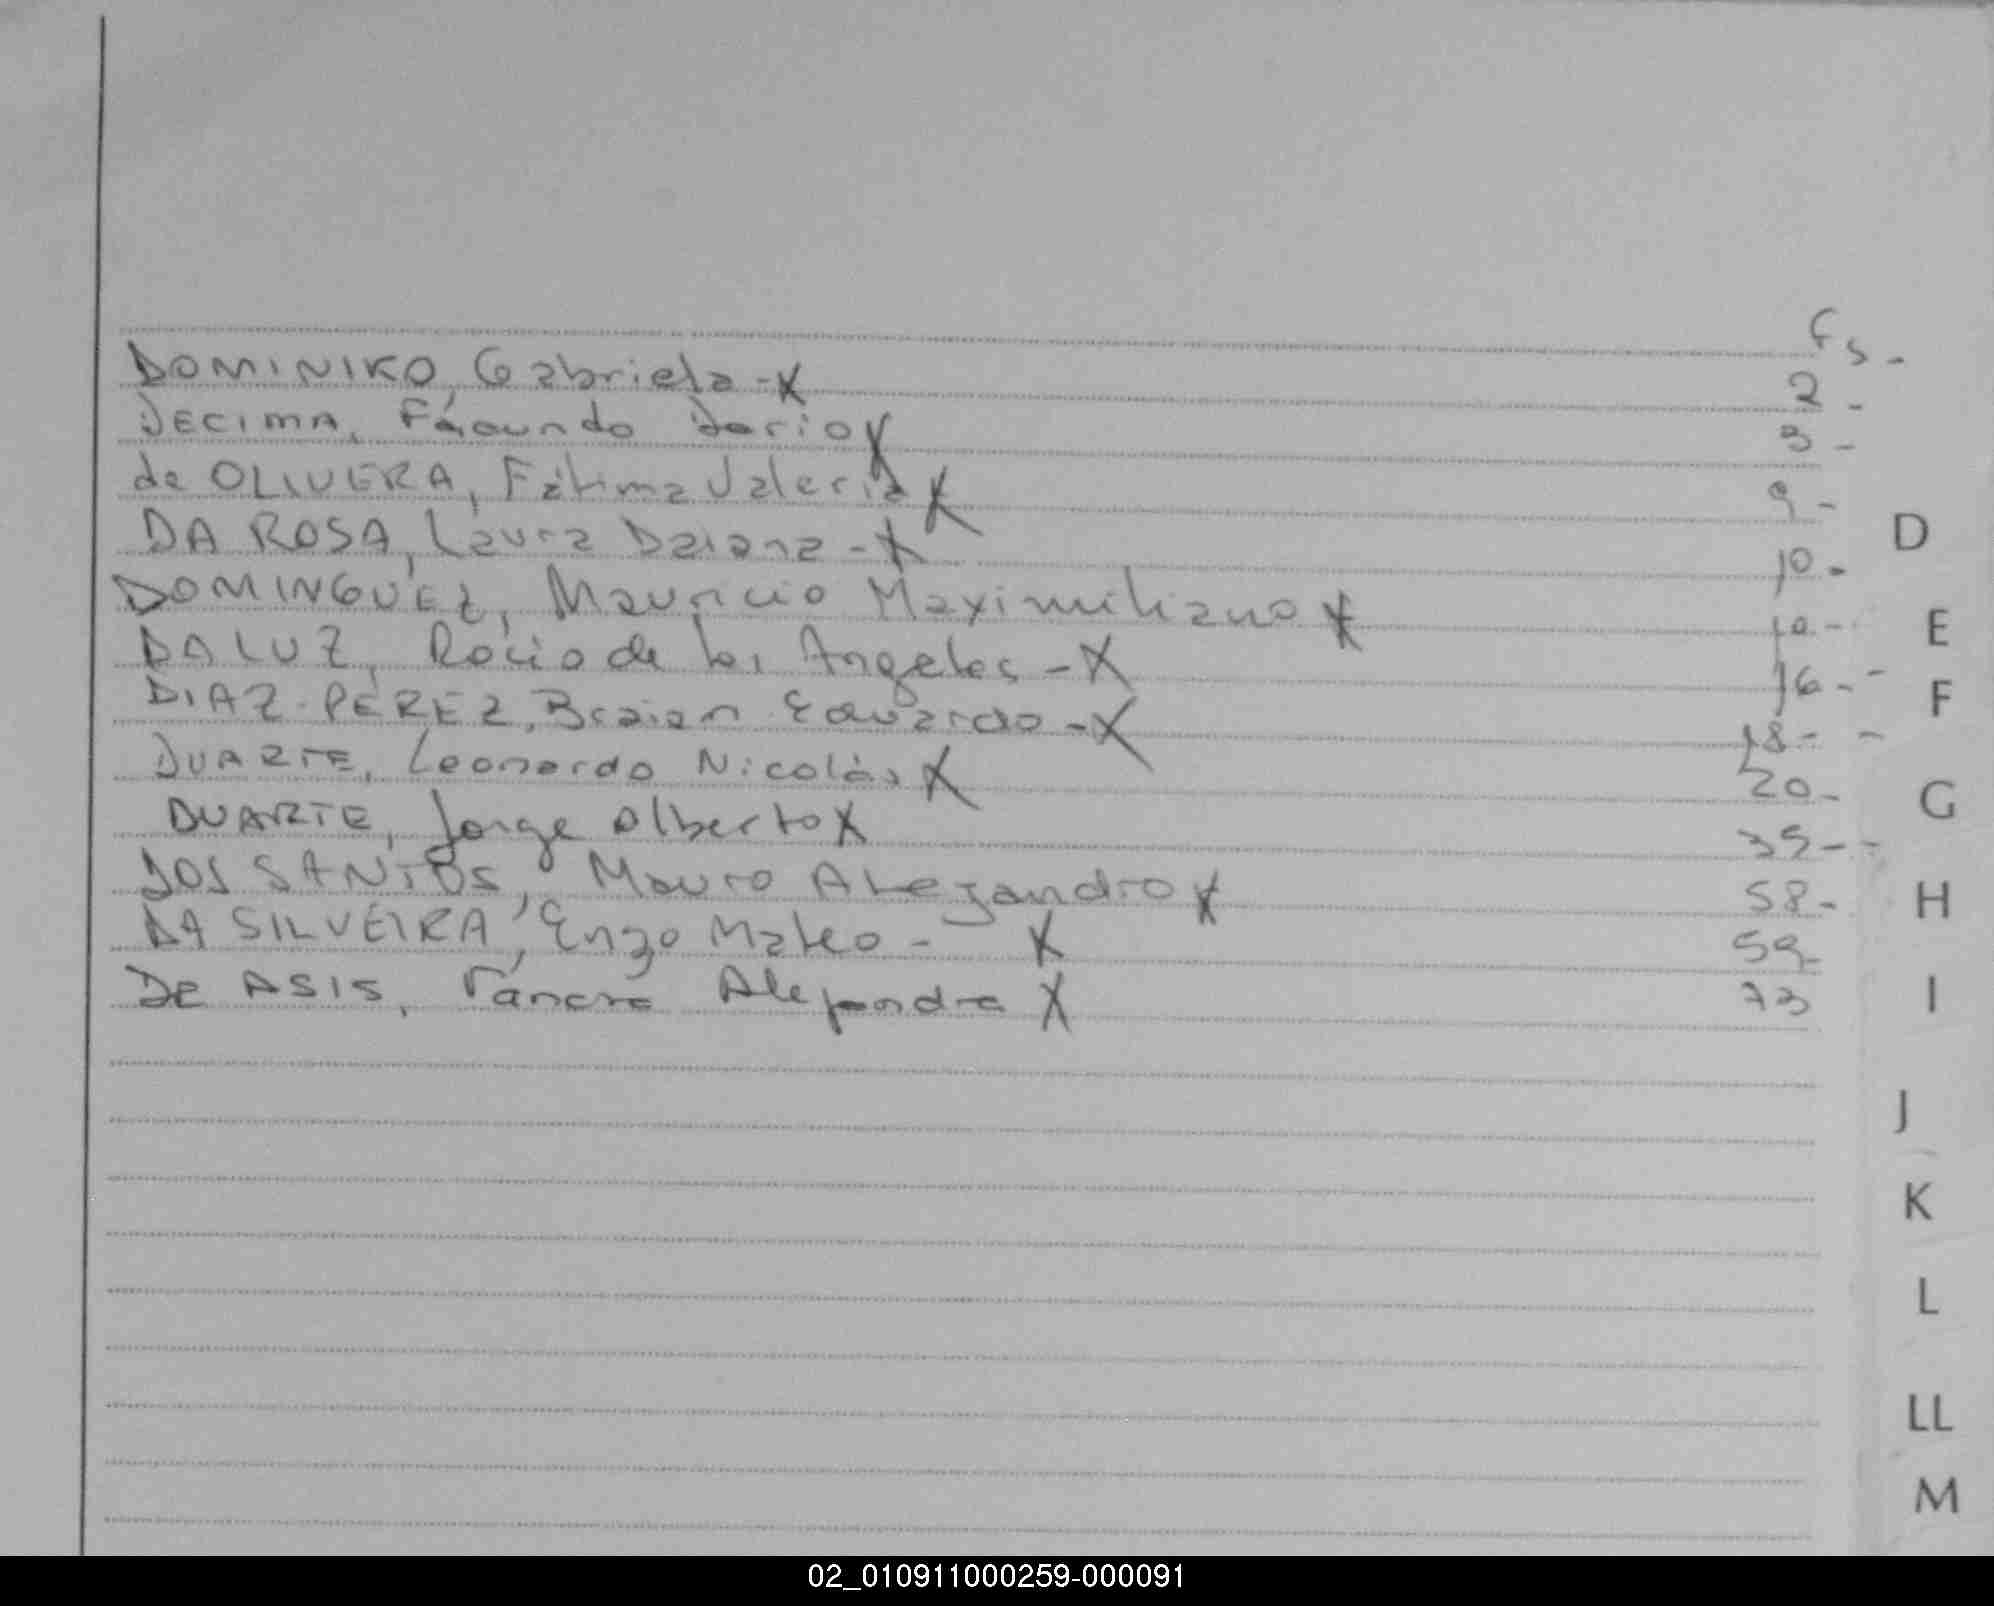 Fs-
DOMINIKO, Gabriela -X 2-
DECIMA, Facundo Dario X 3-
de OLIVERA, Fátima Valeria X 9-
DA ROSA, Laura Daiana -X 10-
DOMINGUEZ, Mauricio Maximiliano X 10-
DA LUZ, Rocio de los Angeles -X 16--
DIAZ PEREZ, Braian Eduardo -X 18--
DUARTE, Leonardo Nicolás X 20-
DUARTE, Jorge Alberto X 35--
DOS SANTOS, Mauro Alejandro X 58-
DA SILVEIRA, Enzo Mateo - X 59-
DE ASIS, Alejandra X 73
D
E
F
G
H
I
J
K
L
LL
M
02_010911000259-000091